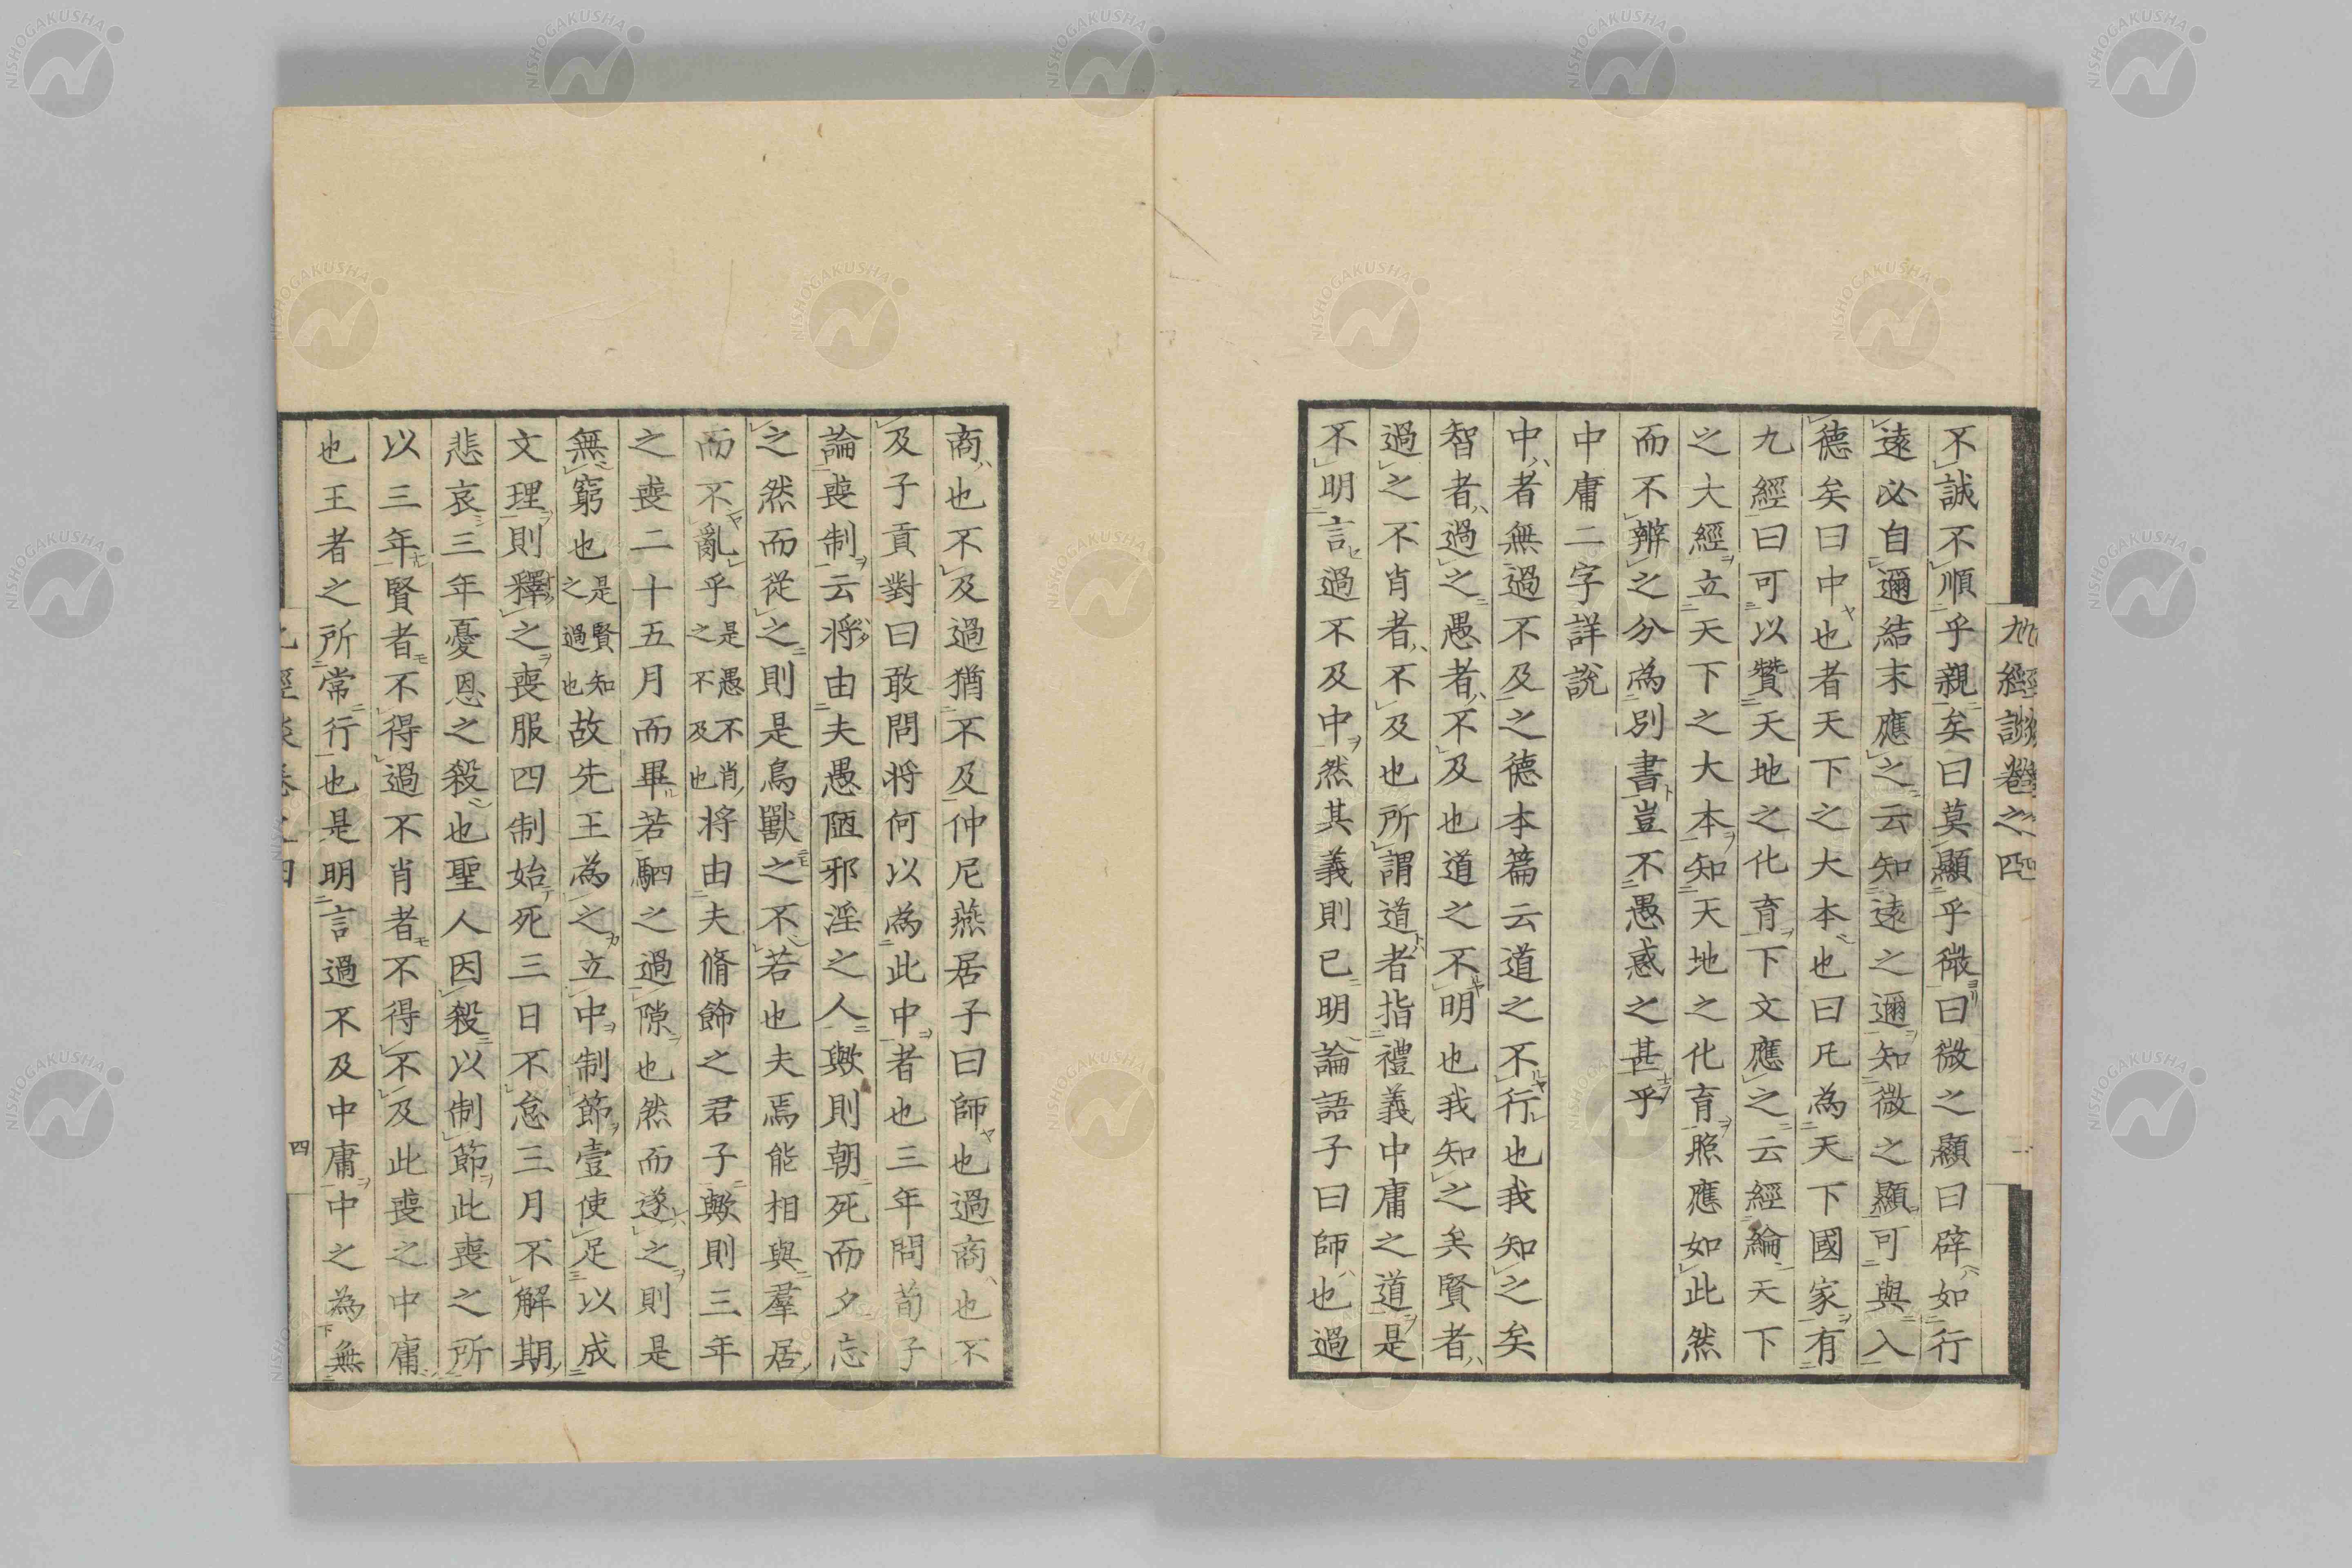 九經談卷之四
不誠不順乎親矣曰莫顯乎微曰微之顯曰辟如行
遠必自邇結末應之云知遠之邇知微之顯可與入
德矣曰中也者天下之大本也曰凡為天下國家有
九經曰可以贊天地之化育下文應之云經綸天下
之大經立天下之大本知天地之化育照應如此然
而不辨之分為別書豈不愚惑之甚乎
中庸二字詳說
中者無過不及之德本篇云道之不行也我知之矣
智者過之愚者不及也道之不明也我知之矣賢者
過之不肖者不及也所謂道者指禮義中庸之道是
不明言過不及中然其義則已明論語子曰師也過
商也不及過猶不及仲尼燕居子曰師也過商也不
及子貢對曰敢問將何以為此中者也三年問荀子
論喪制云將由夫愚陋邪淫之人歟則朝死而夕忘
之然而從之則是鳥獸之不若也夫焉能相與羣居
而不亂乎是愚不肖之不及也將由夫脩飾之君子歟則三年
之喪二十五月而畢若駟之過隙也然而遂之則是
無窮也是賢知之過也故先王為之立中制節壹使足以成
文理則釋之喪服四制始死三日不怠三月不解期
悲哀三年憂恩之殺也聖人因殺以制節此喪之所
以三年賢者不得過不肖者不得不及此喪之中庸
也王者之所常行也是明言過不及中庸中之為無
四
NISHOGAKUSHA